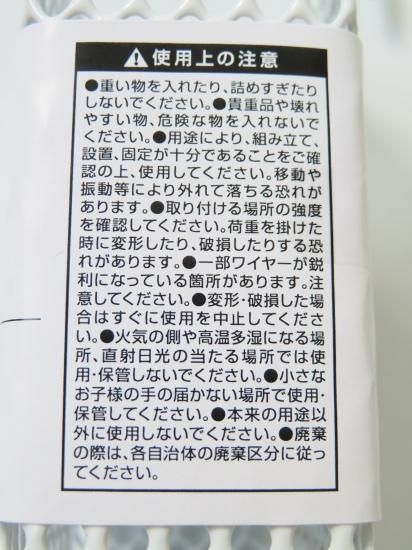 ⚠使用上の注意
●重い物を入れたり、詰めすぎたり
しないでください。●貴重品や壊れ
やすい物、危険な物を入れないで
ください。●用途により、組み立て、
設置、固定が十分であることをご確
認の上、使用してください。移動や
振動等により外れて落ちる恐れが
あります。●取り付ける場所の強度
を確認してください。荷重を掛けた
時に変形したり、破損したりする恐
れがあります。●一部ワイヤーが鋭
利になっている箇所があります。注
意してください。●変形・破損した場
合はすぐに使用を中止してくださ
い。●火気の側や高温多湿になる場
所、直射日光の当たる場所では使
用・保管しないでください。●小さな
お子様の手の届かない場所で使用・
保管してください。●本来の用途以
外に使用しないでください。●廃棄
の際は、各自治体の廃棄区分に従っ
てください。